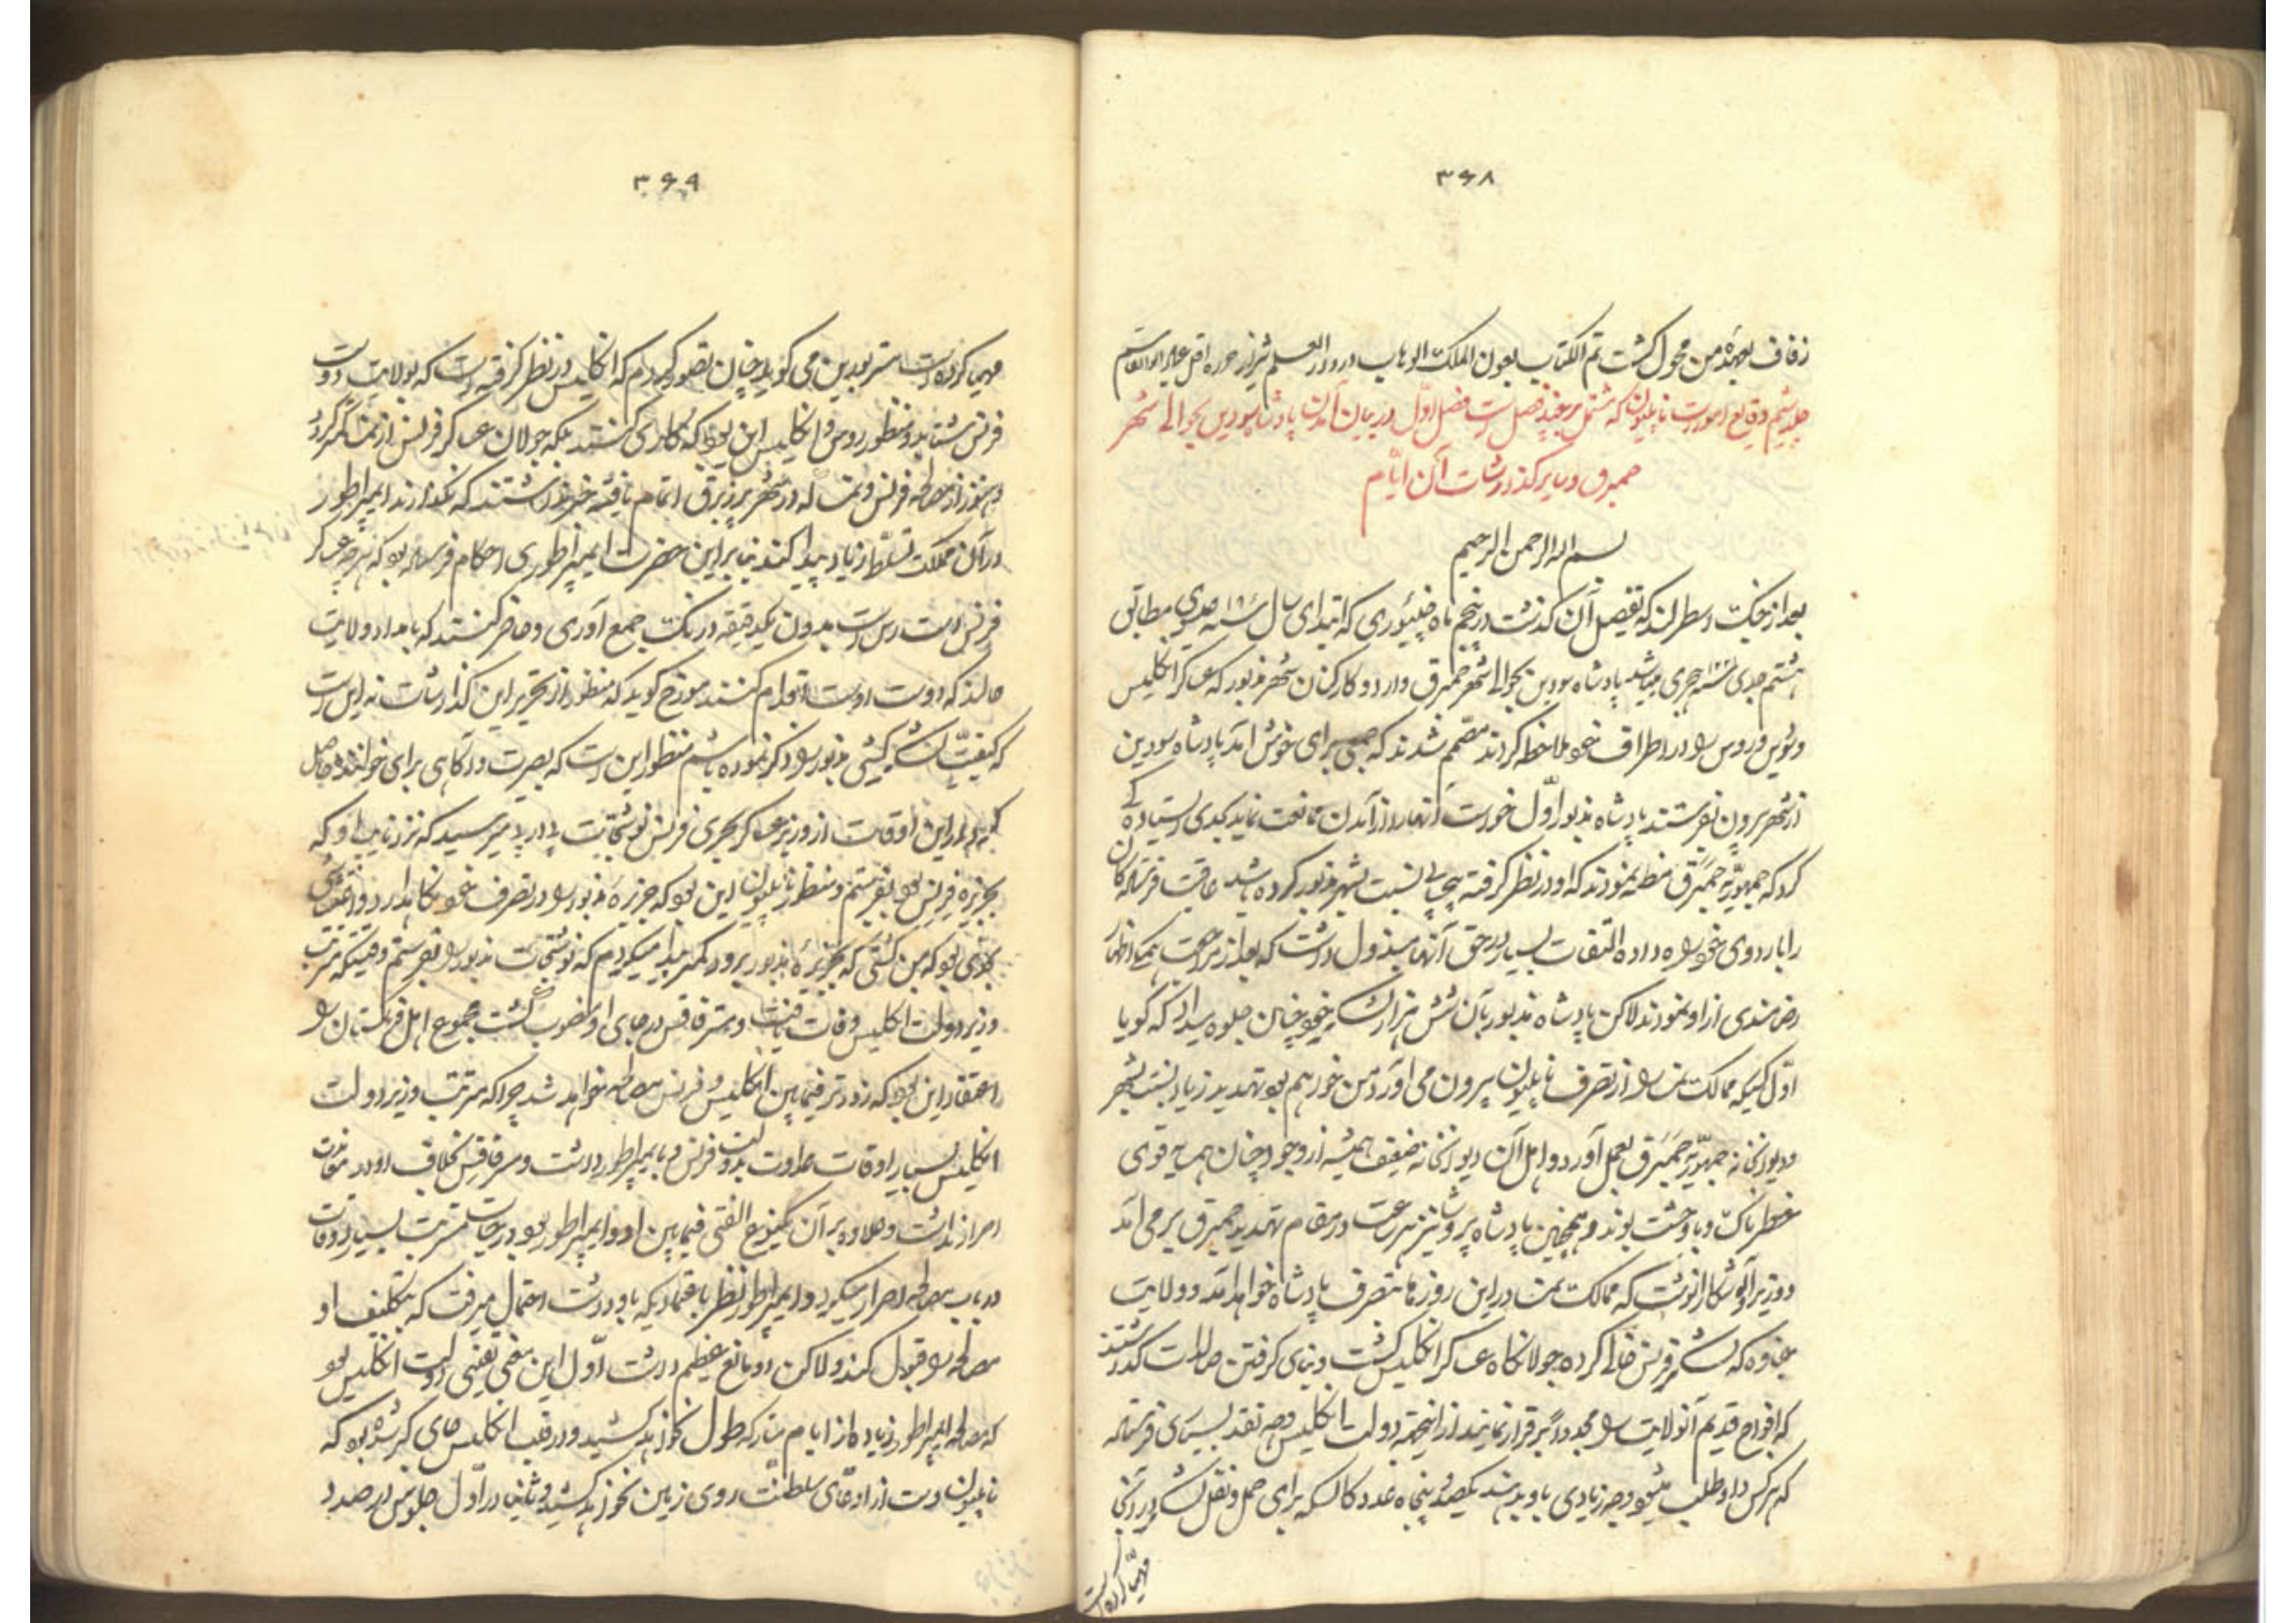 ۳۶۸
زفاف بعهدهٔ من محول گشت تم الکتاب بعون الملک الوهاب در دار العلم شیراز حرره اقل
جلد ششم وقایع امورات ناپلیون که مشتمل بر هفده فصل است فصل اوّل در بیان آمدن پادشاه سودین بحوالی شهر
حمبرق و سایر گذارشات آن ایّام
بسم الله الرحمن الرحیم
بعد از جنگ اسطرلند که تفصیل آن گذشت در پنجم ماه که ابتدای سال عیسوی مطابق
هجری میباشد پادشاه سودین بحوالی شهر حمبرق وارد و کارکنان شهر مزبور که عساکر انگلیس
و سویس و روس را در اطراف خود ملاحظه کردند مصمّم شدند که جمعی برای خوش آمد پادشاه سودین
از شهر بیرون بفرستند پادشاه مزبور اوّل خواست آنها را از آمدن ممانعت نماید بعدی ایستاده گی
کرد که جمهوریّهٔ حمبرق مظنه نمودند که او در نظر گرفته نسبت بشهر مزبور کرده باشد عاقبت فرستاده گان
را باردوی خود راه داده التفات بسیار در حق آنها مبذول داشت که بعد از مراجعت همگی اظهار
رضامندی از او نمودند لاکن پادشاه مزبور بآن شش هزار لشکر خود چنان جلوه میداد که گویا
اوّل کسیکه ممالک نمسا را از تصرف ناپلیون بیرون می آورد من خواهم بود تهدید زیاد نسبت بشهر
و دیوانخانه جمهوریّه حمبرق بعمل آورد و اهل آن دیوانخانه ضعیف همیشه از وجود چنان همسایه قوی
خطرناک و با وحشت بودند و همچنین پادشاه پروشا نیز بسرعت در مقام تهدید حمبرق برمی آمد
و وزیر او آشکارا نوشت که ممالک نمسا در این روزها بتصرف پادشاه خواهد آمد و ولایت
هانوه که لشکر فرنس خالی کرده جولانگاه عساکر انگلیس گشت و بنای گرفتن سالدات گذاشتند
که افواج قدیم آنولایت را مجدداً برقرار نمایند از اینجهة دولت انگلیس وجه نقد بسیاری فرستاده
که هر کس داوطلب میشود وجه زیادی باو بدهند یکصد و پنجاه عدد کالسکه برای حمل و نقل لشکر در آنجا
مهیّا کرده است
۳۶۹
مهیا کرده است مستر بورین می گوید چنان تصور کردم که انگلیس در نظر گرفته است که بولایت دولت
فرنس بشتابد و منظور روس و انگلیس این بود که کاری کنند بلکه جولان عساکر فرنس از نمسا کمتر گردد
و هنوز از مصالحه فرنس و نمسا که در شهر پرزبرق اتمام یافته خبر نداشتند که نگذارند ایمپراطور
در آن مملکت تسلّط زیاد پیدا کند بنابراین حضرت ایمپراطوری احکام فرستاده بود که هر چه عساکر
فرنس است راست بدون یکدقیقه درنگ جمع آوری و حاضر کنند که بامداد ولایت
هالند که دوست اوست اقدام کنند مورّخ گوید که منظور از تحریر این گذارشات نه این است
که کیفیّت لشکر کشی مزبور را ذکر نموده باشم منظور این است که بصیرت و آگاهی برای خواننده حاصل
گردد در این اوقات از وزیر عساکر بحری فرنس نوشتجات پی در پی میرسید که نزد نایب او که
بجزیره فرنس بود بفرستم و منظور ناپلیون این بود که جزیرهٔ مزبور را در تصرف خود نگاهدارد و اعتقادش
بود که من کشتی که بجزیرهٔ مزبور برود کمتر پیدا میکردم که نوشتجات مزبور را بفرستم وقتیکه مستر پت
وزیر دولت انگلیس وفات یافت و مستر فاقس در جای او منصوب گشت جمیع اهل فرنگستان را
اعتقاد این بود که زودتر فیمابین انگلیس و فرنس مصالحه خواهد شد چرا که مستر پت وزیر دولت
انگلیس بسیار اوقات عداوت بدولت فرنس و بایمپراطور داشت و مستر فاقس بخلاف او در معاندت
اصرار نداشت و علاوه بر آن یکنوع الفتی فیمابین او و ایمپراطور بود در حیات مستر پت بسیار اوقات
در باب مصالحه اصرار میکرد و ایمپراطور نظر باعتمادیکه باو داشت احتمال میرفت که بتکلیف او
مصالحه را قبول کند و لاکن دو مانع عظیم داشت اوّل این معنی یقینی دولت انگلیس بود
که مصالحه ایمپراطور زیاده از ایام متارکه طول نخواهد کشید و در قلب انگلیس جای گیر شده بود که
ناپلیون دست از ادعای سلطنت روی زمین نخواهد کشید و ثانیاً در اوّل جلوس در صدد